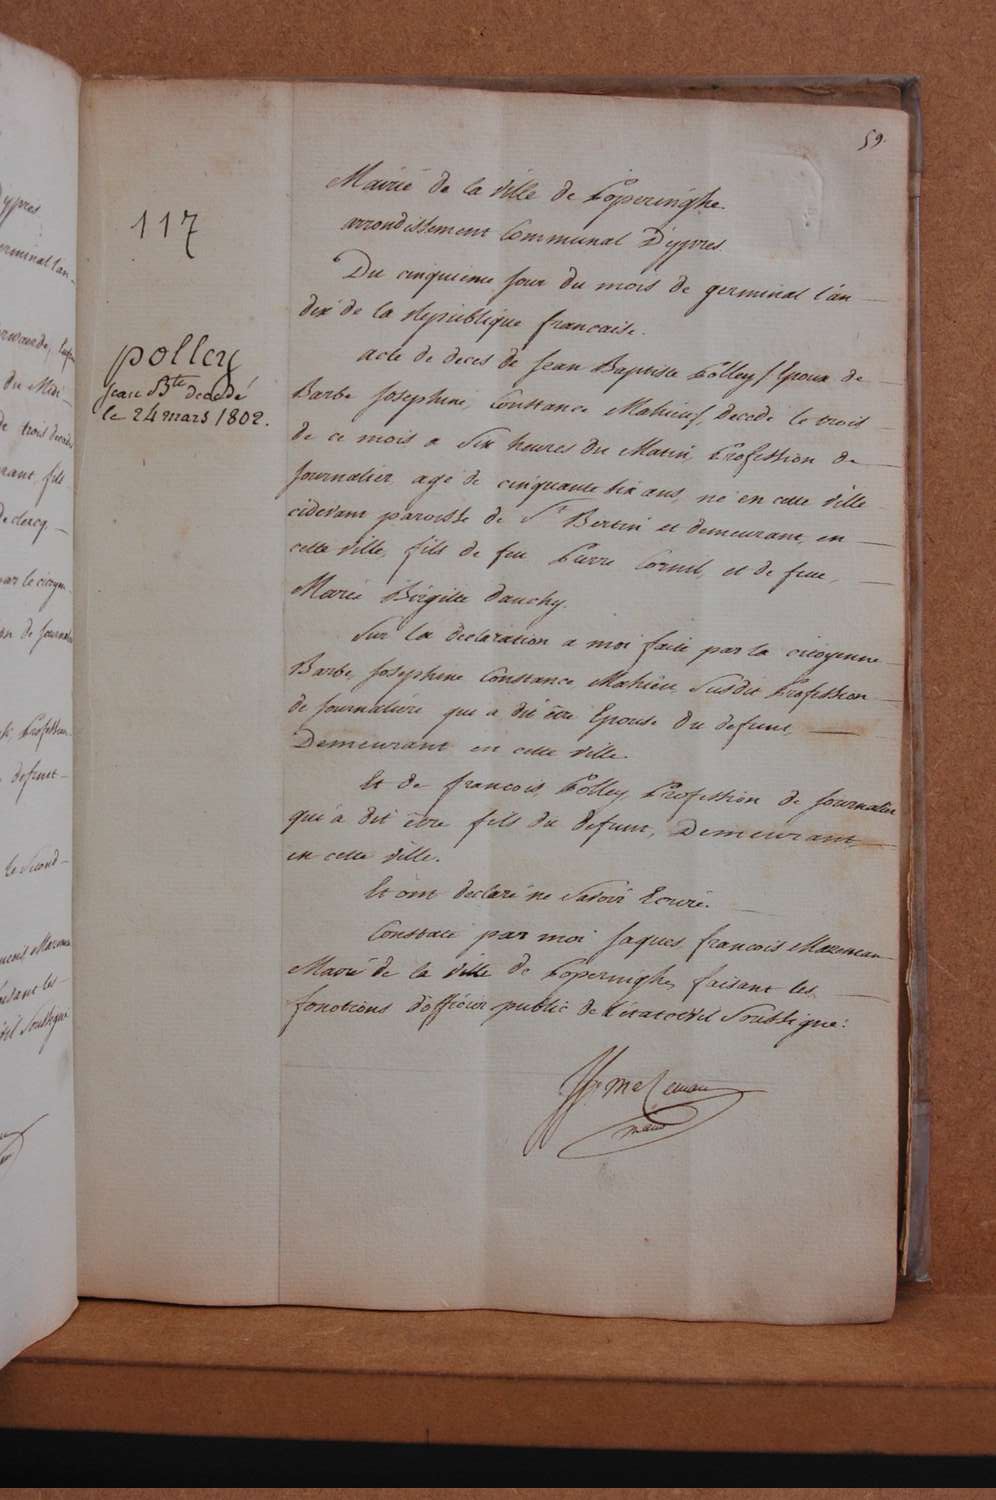 59.
117
polley
Jean Bte decedé
le 24 mars 1802.
Mairie de la Ville de Poperinghe
arrondissement Communal D'ypres.
Du cinquieme jour du mois de germinal l'an
dix de la Republique francaise.
acte de deces de Jean Baptiste Polley / Epoux de
Barbe Josephine, Constance Mahieu / decede le trois
de ce mois a Six heures du Matin, Profession de
Journalier agé de cinquante six ans, né en cette ville
cidevant paroisse de St Bertin et demeurant en
cette ville, fils de feu Pierre Cornil, et de feue,
Marie Birgitte dauchy.
Sur la declaration a moi faite par la citoyenne
Barbe, Josephine Constance Mahieu, Susdit Profession
de Journaliere qui a dit être Epouse du defunt,
Demeurant en cette ville.
Et de francois, Polley, Profession de Journalier
qui à dit être fils du defunt, Demeurant
en cette ville.
Et ont declaré ne Savoir Ecrire.
Constaté par moi Jaques francois Mazeman
Maire de la Ville de Poperinghe, faisant les
fonctions d'officier public de l'état civil Soussigné:
Mazeman
maire
ypres
germinal l'an
du Midi
de trois
fils
Declercq
par le citoyen
de Journalier
Profession
defunt
le Second
Mazeman
faisant les
Soussigné